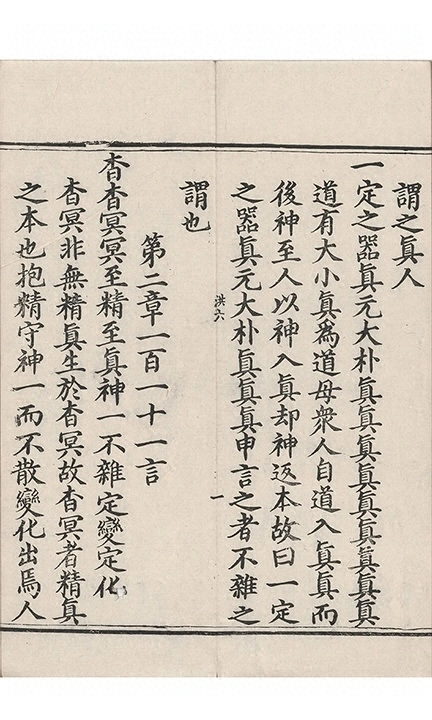 謂之眞人
一定之器眞元大朴眞眞眞眞眞眞眞眞眞
道有大小眞為道母衆人自道入眞眞而
後神至人以神入眞却神返本故曰一定
之器眞元大朴眞眞眞申言之者不雜之
謂也
洪六
一
第二章一百一十一言
杳杳冥冥至精至眞神一不雜定變定化
杳冥非無精眞生於杳冥故杳冥者精眞
之本也抱精守神一而不散變化出焉人